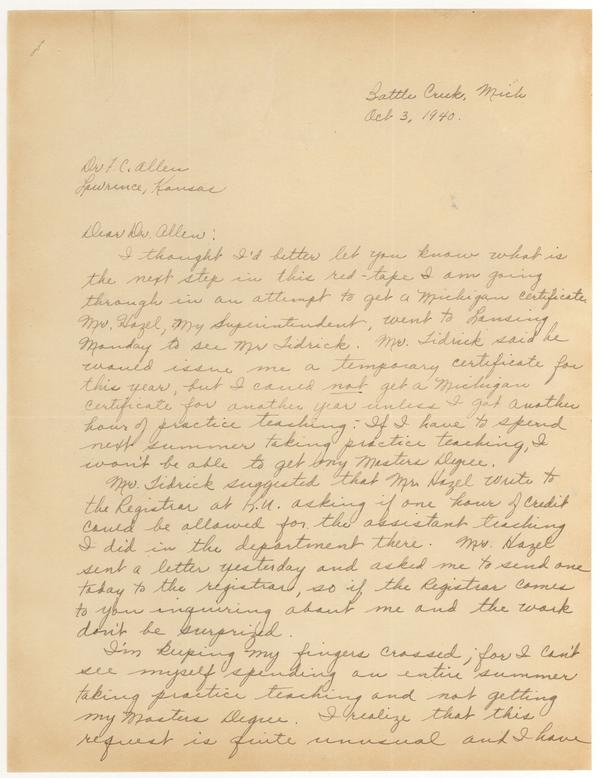 Battle Creek, Mich
Oct 3, 1940.
Dr F. C. Allen
Lawrence, Kansas
Dear Dr. Allen:
I thought I'd better let you know what is
the next step in this red-tape I am going
through in an attempt to get a Michigan certificate.
Mr. Hazel, my Superintendent, went to Lansing
Monday to see Mr Tidrick. Mr. Tidrick said he
would issue me a temporary certificate for
this year, but I could not get a Michigan
certificate for another year unless I got another
hour of practice teaching. If I have to spend
next summer taking practice teaching, I
won't be able to get my Masters Degree.
Mr. Tidrick suggested that Mr. Hazel write to
the Registrar at K.U. asking if one hour of credit
could be allowed for the assistant teaching
I did in the department there. Mr. Hazel
sent a letter yesterday and asked me to send one
today to the registrar, so if the Registrar comes
to you inquiring about me and the work
don't be surprized.
I'm keeping my fingers crossed, for I can't
see myself spending an entire summer
taking practice teaching and not getting
my Masters Degree. I realize that this
request is quite unusual and I have